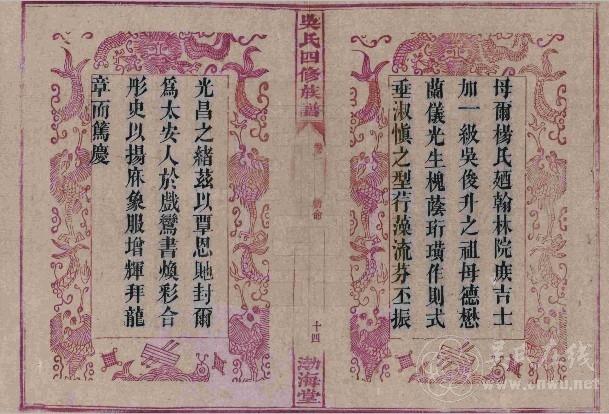 母爾楊氏廼翰林院庶吉士
加一級吳俊升之祖母德懋
蘭儀光生槐蔭珩璜作則式
垂淑慎之型荇藻流芬丕振
吳氏四修族譜
十四
渤海堂
光昌之緒茲以覃恩貤封爾
爲太安人於戲鸞書煥彩合
彤史以揚庥象服增輝拜龍
章而篤慶
www.cnwu.net